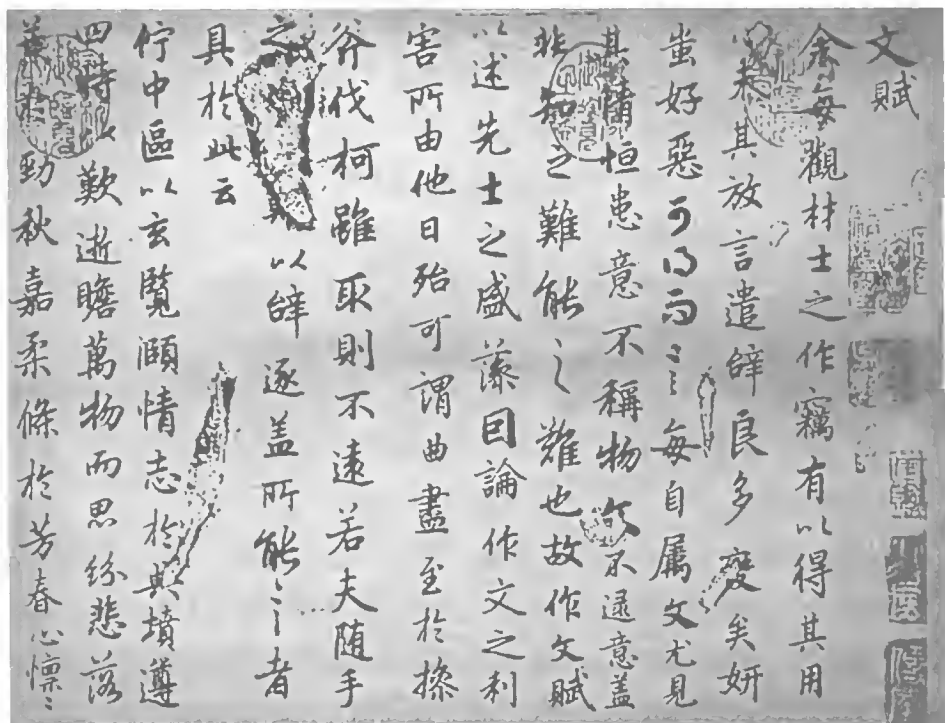 文賦
余每觀材士之作竊有以得其用
心夫其放言遣辝良多變矣妍
蚩好惡可得而言每自屬文尤見
其情恒患意不稱物文不逮意盖
非知之難能之難也故作文賦
以述先士之盛藻因論作文之利
害所由他日殆可謂曲盡至於操
斧伐柯雖取則不遠若夫随手
之以辝逐盖所能言者
具於此云
佇中區以玄覽頤情志於典墳遵
四時以歎逝瞻萬物而思紛悲落
葉於勁秋嘉柔條於芳春心懍〻